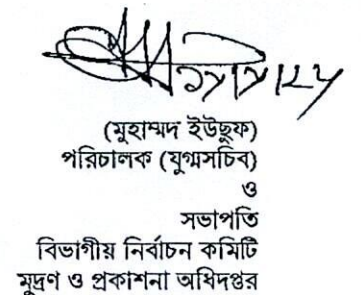 (মুহাম্মদ ইউছুফ)
পরিচালক (যুগ্মসচিব)
ও
সভাপতি
বিভাগীয় নির্বাচন কমিটি
মুদ্রণ ও প্রকাশনা অধিদপ্তর